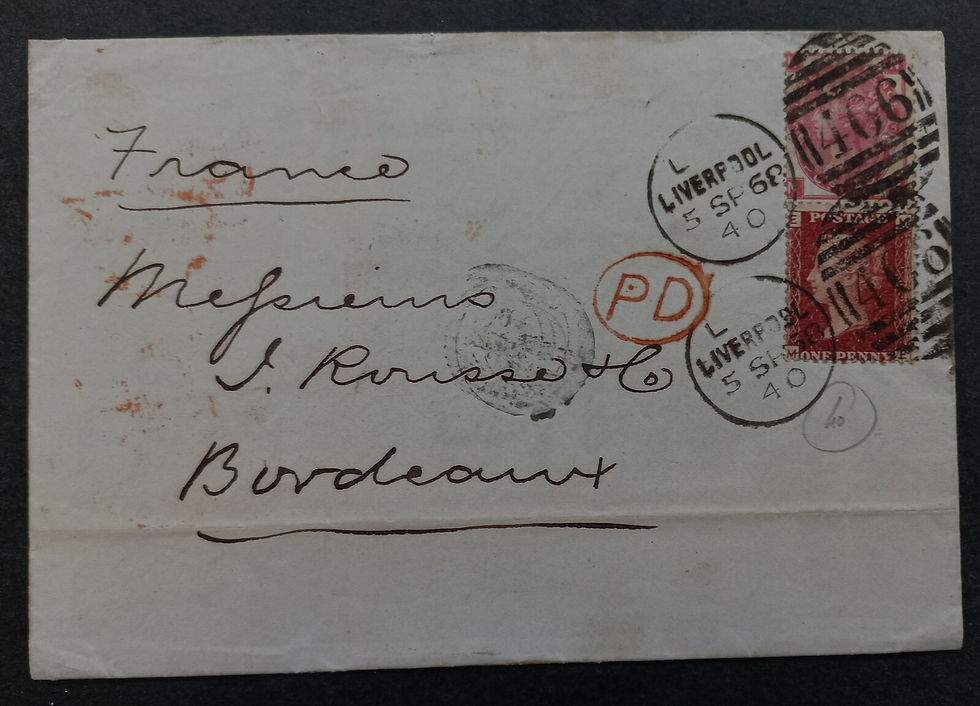 France
Messieurs
J. Rousse & Co
Bordeaux
PD
L
LIVERPOOL
5 SP 68
40
L
LIVERPOOL
5 SP 68
40
466
466
E POSTAGE M
M ONE PENNY E
40